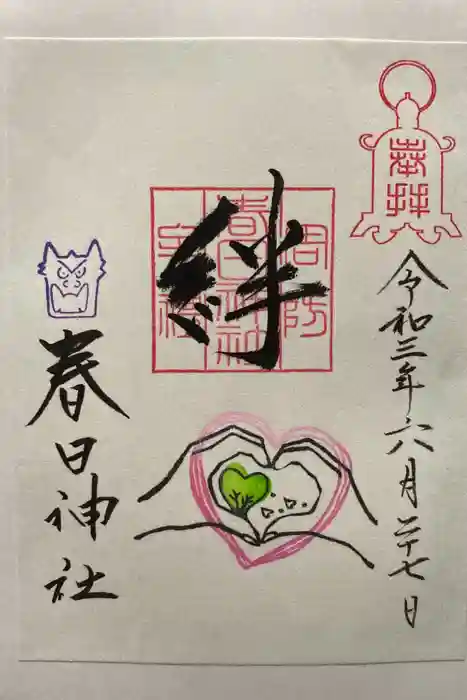 奉拝
令和三年六月二十七日
絆
周防
春日神社
宮福
春日神社